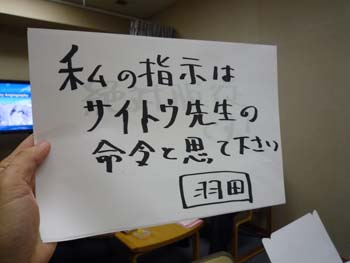 私の指示は
サイトウ先生の
命令と思て下さい
羽田